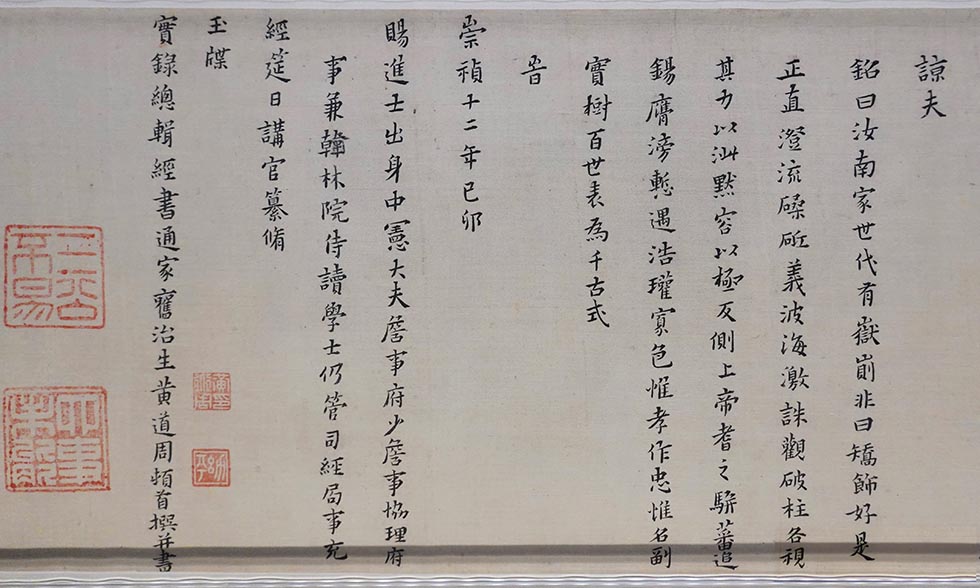 諒夫
銘曰汝南家世代有嶽崱非曰矯飾好是
正直澄流磉砥義波海激誅觀破柱各視
其力以汕默容以極反側上帝耆之駢蕃追
錫膺滂慙遇浩瓘寡色惟孝作忠惟名副
實樹百世表為千古式
旹
崇禎十二年己卯
賜進士出身中憲大夫詹事府少詹事協理府
事兼翰林院侍讀學士仍管司經局事充
經筵日講官纂脩
玉牒
實錄總輯經書通家舊治生黃道周頓首撰并書